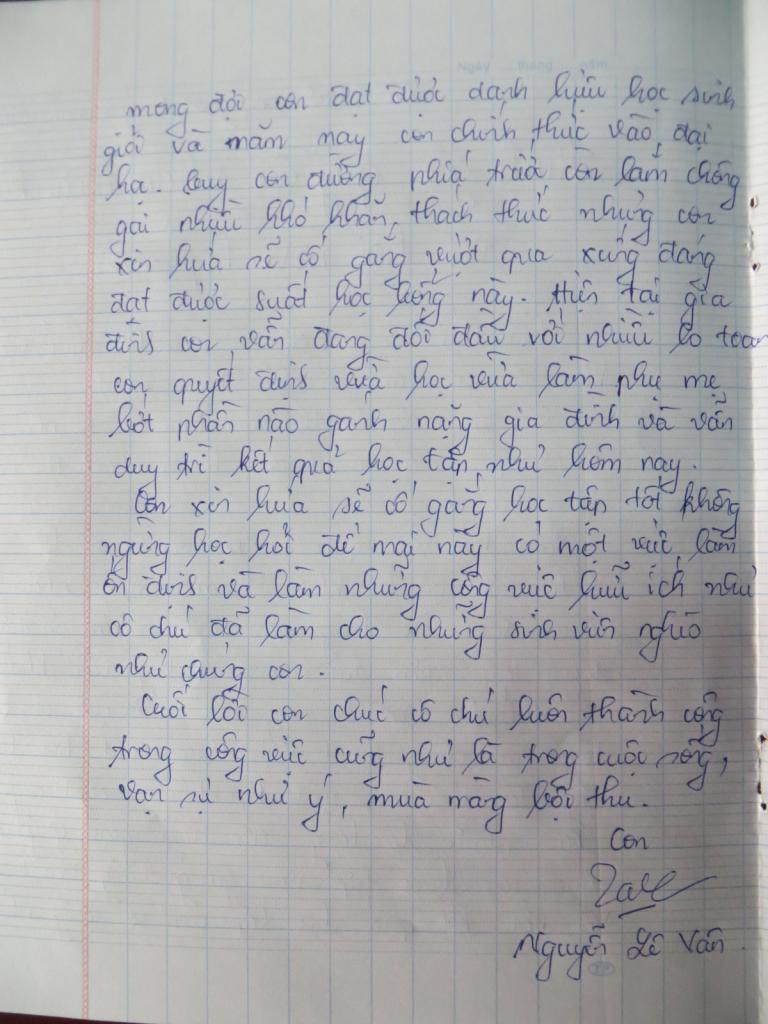 Ngày tháng năm
mong đợi con đạt được danh hiệu học sinh
giỏi và mắn may con chính thức vào đại
học. Tuy con đường phía trước còn lắm chông
gai nhiều khó khăn, thách thức nhưng con
xin hứa sẽ cố gắng vượt qua xứng đáng
đạt được suất học bổng này. Hiện tại gia
đình con vẫn đang đối đầu với nhiều lo toan
con quyết định vừa học vừa làm phụ mẹ
bớt phần nào gánh nặng gia đình và vẫn
duy trì kết quả học tập như hôm nay.
Con xin hứa sẽ cố gắng học tập tốt không
ngừng học hỏi để mai này có một việc làm
ổn định và làm những công việc hữu ích như
cô chú đã làm cho những sinh viên nghèo
như chúng con.
Cuối lời con chúc cô chú luôn thành công
trong công việc cũng như là trong cuộc sống,
vạn sự như ý, mùa màng bội thu.
Con
Nguyễn Lê Vân